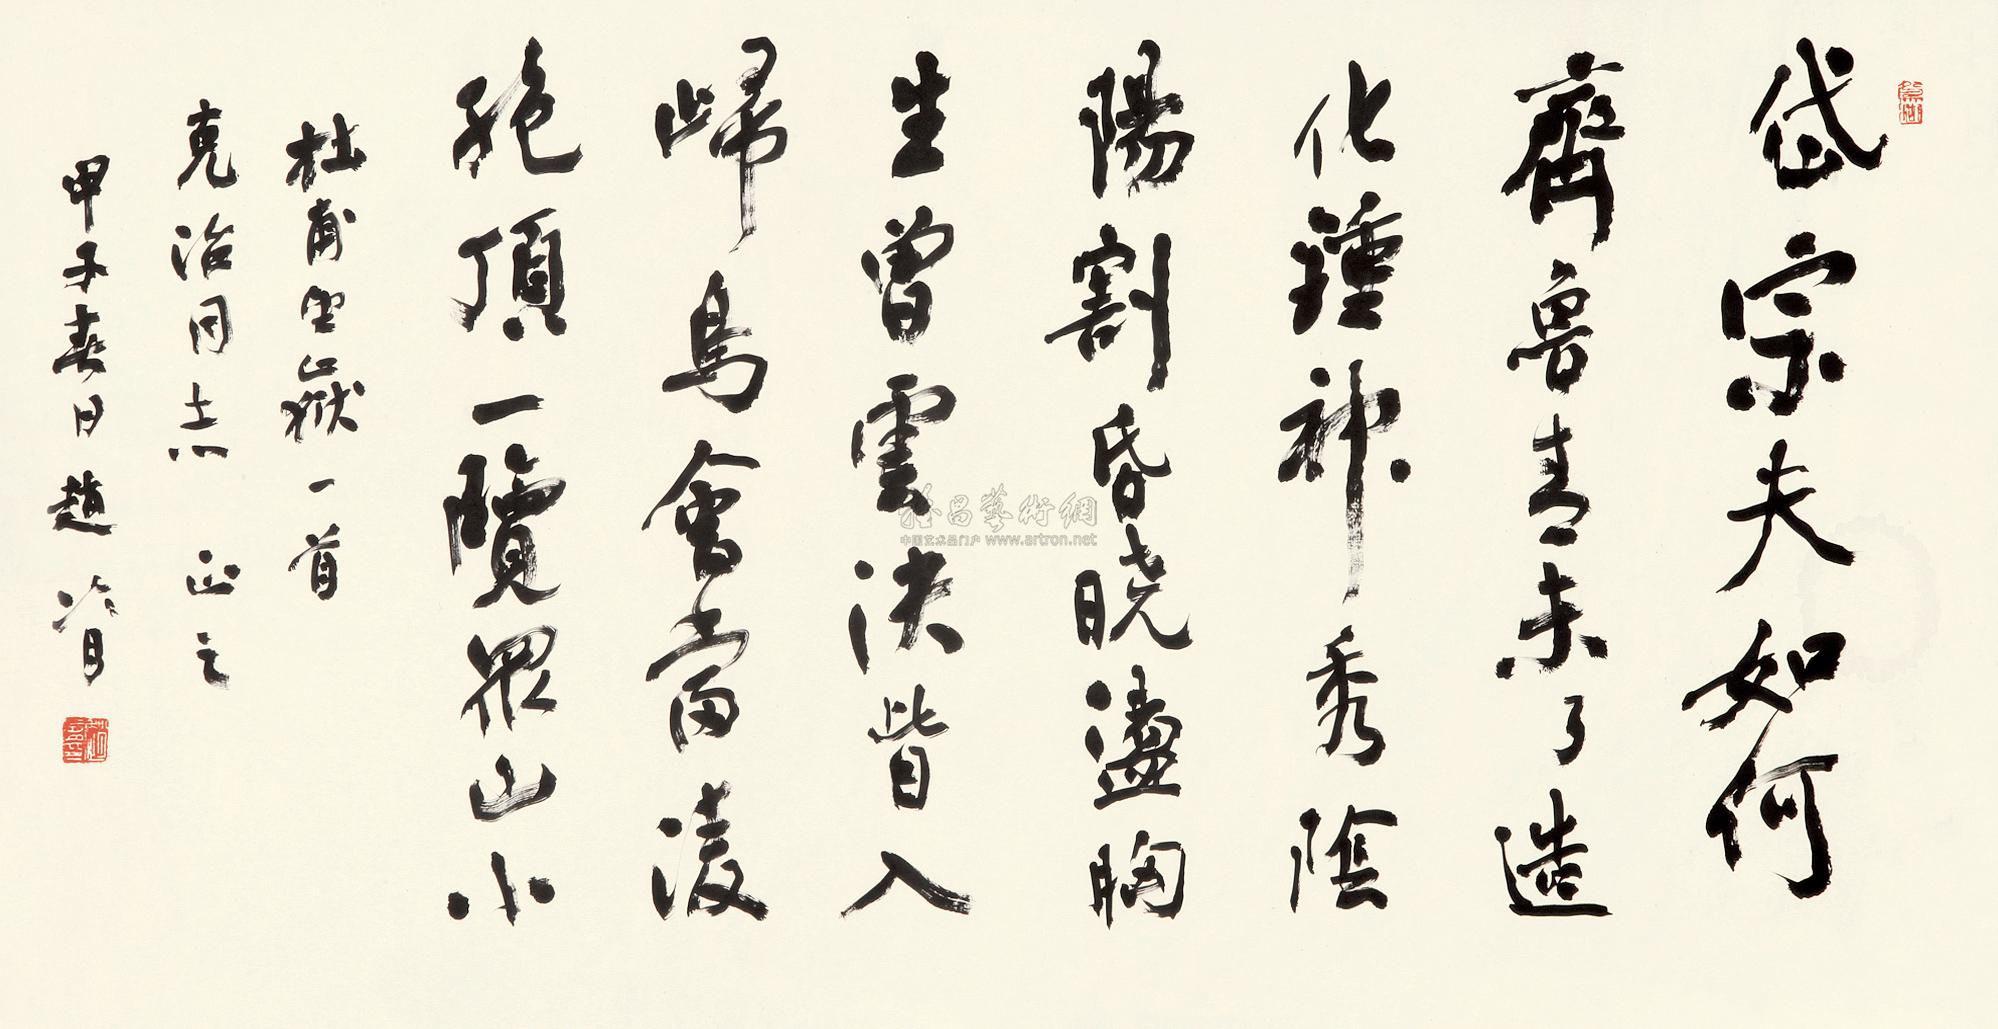 岱宗夫如何
齊魯青未了造
化鍾神秀陰
陽割昏晓盪胸
生曾雲決眥入
歸鳥會當凌
絕頂一覽眾山小
杜甫望嶽一首
克治同志 正之
甲子春日趙冷月
雅昌藝術網
中国艺术品门户 www.artron.net